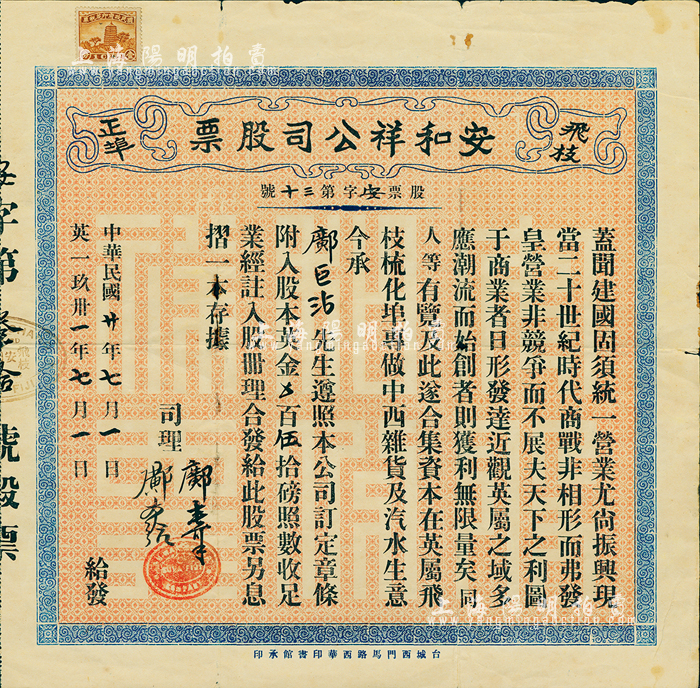 上海陽明拍賣
飛枝
安和祥公司股票
正埠
股票安字第三十號
蓋聞建國固須統一營業尤尚振興現
當二十世紀時代商戰非相形而弗發
皇營業非競爭而不展夫天下之利圖
于商業者日形發達近觀英屬之域多
應潮流而始創者則獲利無限量矣同
人等有覽及此遂合集資本在英屬飛
枝梳化埠專做中西雜貨及汽水生意
今承
鄺巨沾先生遵照本公司訂定章條
附入股本英金 百伍拾磅照數收足
業經註入股冊理合發給此股票另息
摺一本存據
司理
鄺
鄺
中華民國廿年七月一日
英一玖卅一年七月一日
給發
安字第叁拾號股票
台城西門馬路西華印書館承印
上海陽明拍賣
上海陽明拍賣